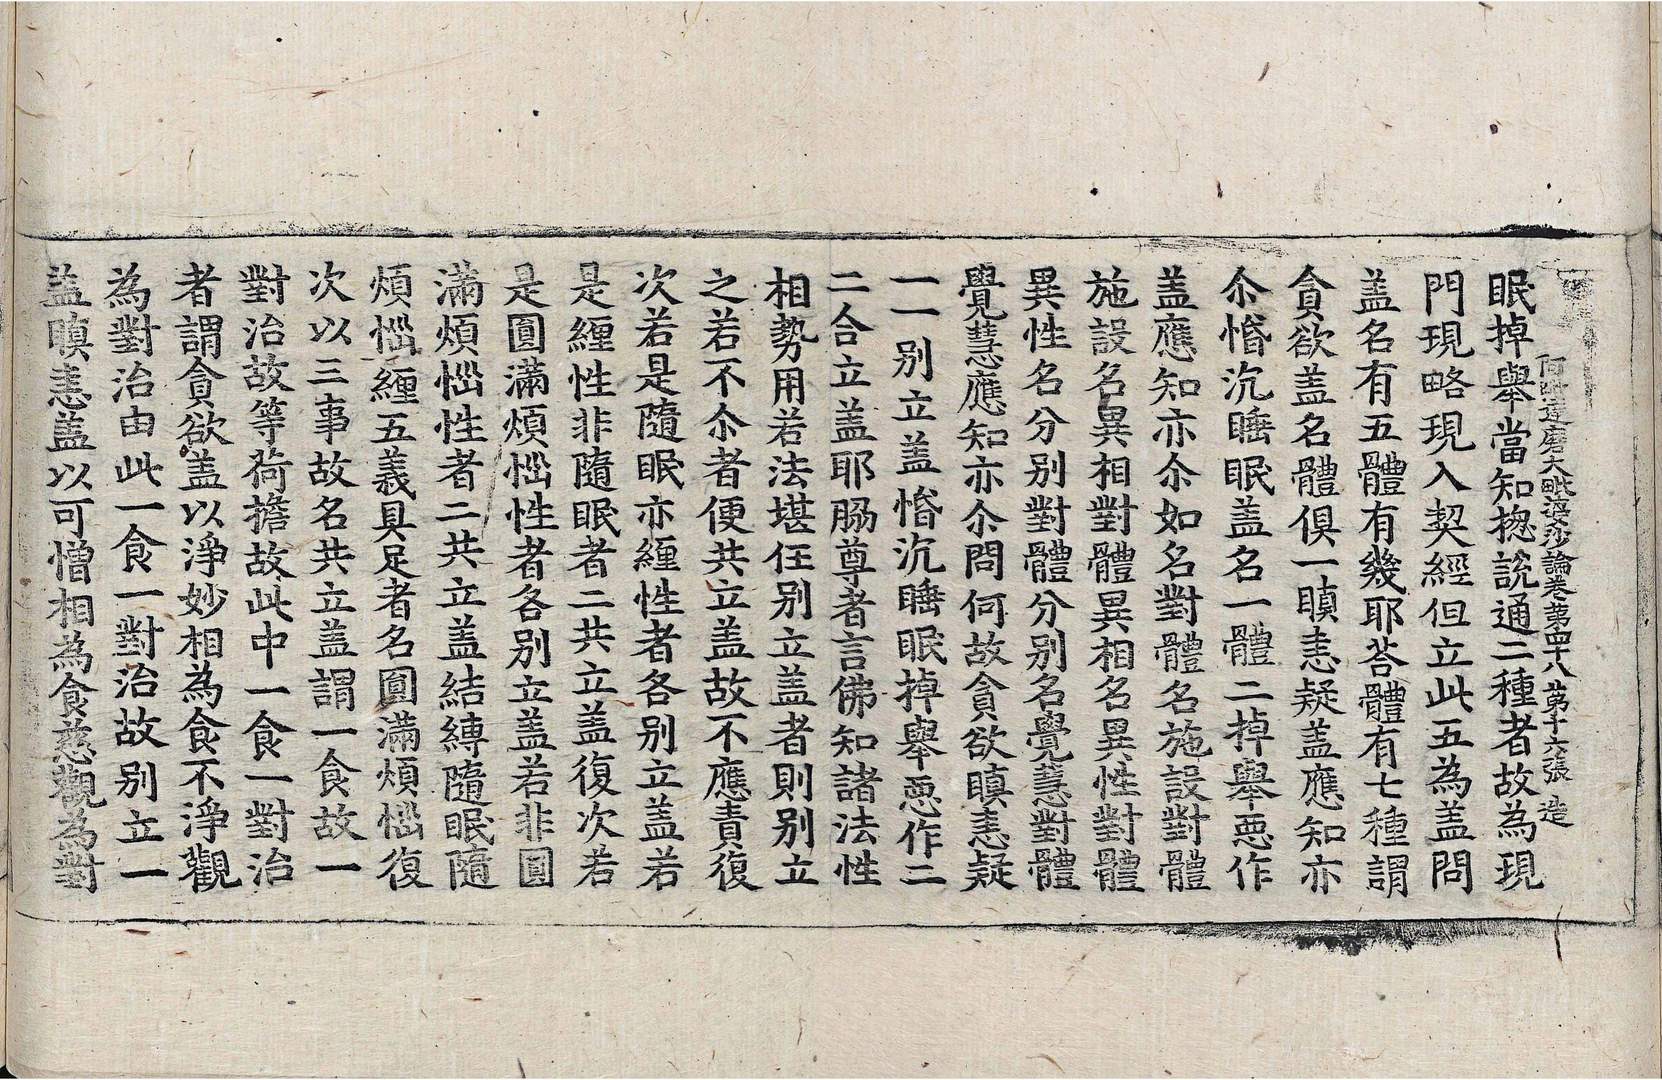 阿毗達磨大毗婆沙論卷第四十八 第十六張 造
眠掉舉當知揔說通二種者故為現
門現略現入契經但立此五為盖問
盖名有五體有幾耶荅體有七種謂
貪欲盖名體俱一瞋恚疑盖應知亦
尒惛沉睡眠盖名一體二掉舉惡作
盖應知亦尒如名對體名施設對體
施設名異相對體異相名異性對體
異性名分別對體分別名覺慧對體
覺慧應知亦尒問何故貪欲瞋恚疑
一一別立盖惛沉睡眠掉舉惡作二
二合立盖耶脇尊者言佛知諸法性
相勢用若法堪任別立盖者則別立
之若不尒者便共立盖故不應責復
次若是隨眠亦纏性者各別立盖若
是纏性非隨眠者二共立盖復次若
是圓滿煩惱性者各別立盖若非圓
滿煩惱性者二共立盖結縛隨眠隨
煩惱纏五義具足者名圓滿煩惱復
次以三事故名共立盖謂一食故一
對治故等荷擔故此中一食一對治
者謂貪欲盖以淨妙相為食不淨觀
為對治由此一食一對治故別立一
盖瞋恚盖以可憎相為食慈觀為對